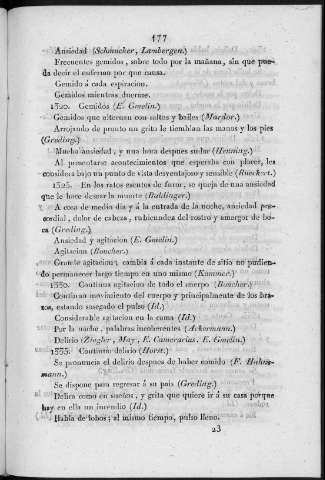 177
Ansiedad (Schmucker, Lambergen.)
Frecuentes gemidos, sobre todo por la mañana, sin que pue-
da decir el enfermo por que causa.
Gemido á cada espiracion.
Gemidos mientras duerme.
1320. Gemidos (E. Gmelin.)
Gemidos que alternan con saltos y bailes (Mardor.)
Arrojando de pronto un grito le tiemblan las manos y los pies
(Greding.)
Mucha ansiedad, y una hora despues sudor (Henning.)
Al presentarse acontecimientos que esperaba con placer, los
considera bajo un punto de vista desventajoso y sensible (Rueckert.)
1325. En los ratos esentos de furor, se queja de una ansiedad
que le hace desear la muerte (Baldinger.)
A cosa de medio dia y á la entrada de la noche, ansiedad pre-
cordial, dolor de cabeza, rubicundez del rostro y amargor de bo-
ca (Greding.)
Ansiedad y agitacion (E. Gmelin.)
Agitacion (Boucher.)
Grande agitacion; cambia á cada instante de sitio no pudien-
do permanecer largo tiempo en uno mismo (Kummer.)
1330. Continua agitacion de todo el cuerpo (Boucher.)
Continuo movimiento del cuerpo y principalmente de los bra-
zos, estando sosegado el pulso (Id.)
Considerable agitacion en la cama (Id.)
Por la noche, palabras incoherentes (Ackermann.)
Delirio (Ziegler, May, E. Camerarius, E. Gmelin.)
1335. Continuo delirio (Horst.)
Se pronuncia el delirio despues de haber comido (F. Hahne-
mann.)
Se dispone para regresar á su pais (Greding.)
Delira como en sueños, y grita que quiere ir á su casa porque
hay en ella un incendio (Id.)
Habla de lobos; al mismo tiempo, pulso lleno.
23